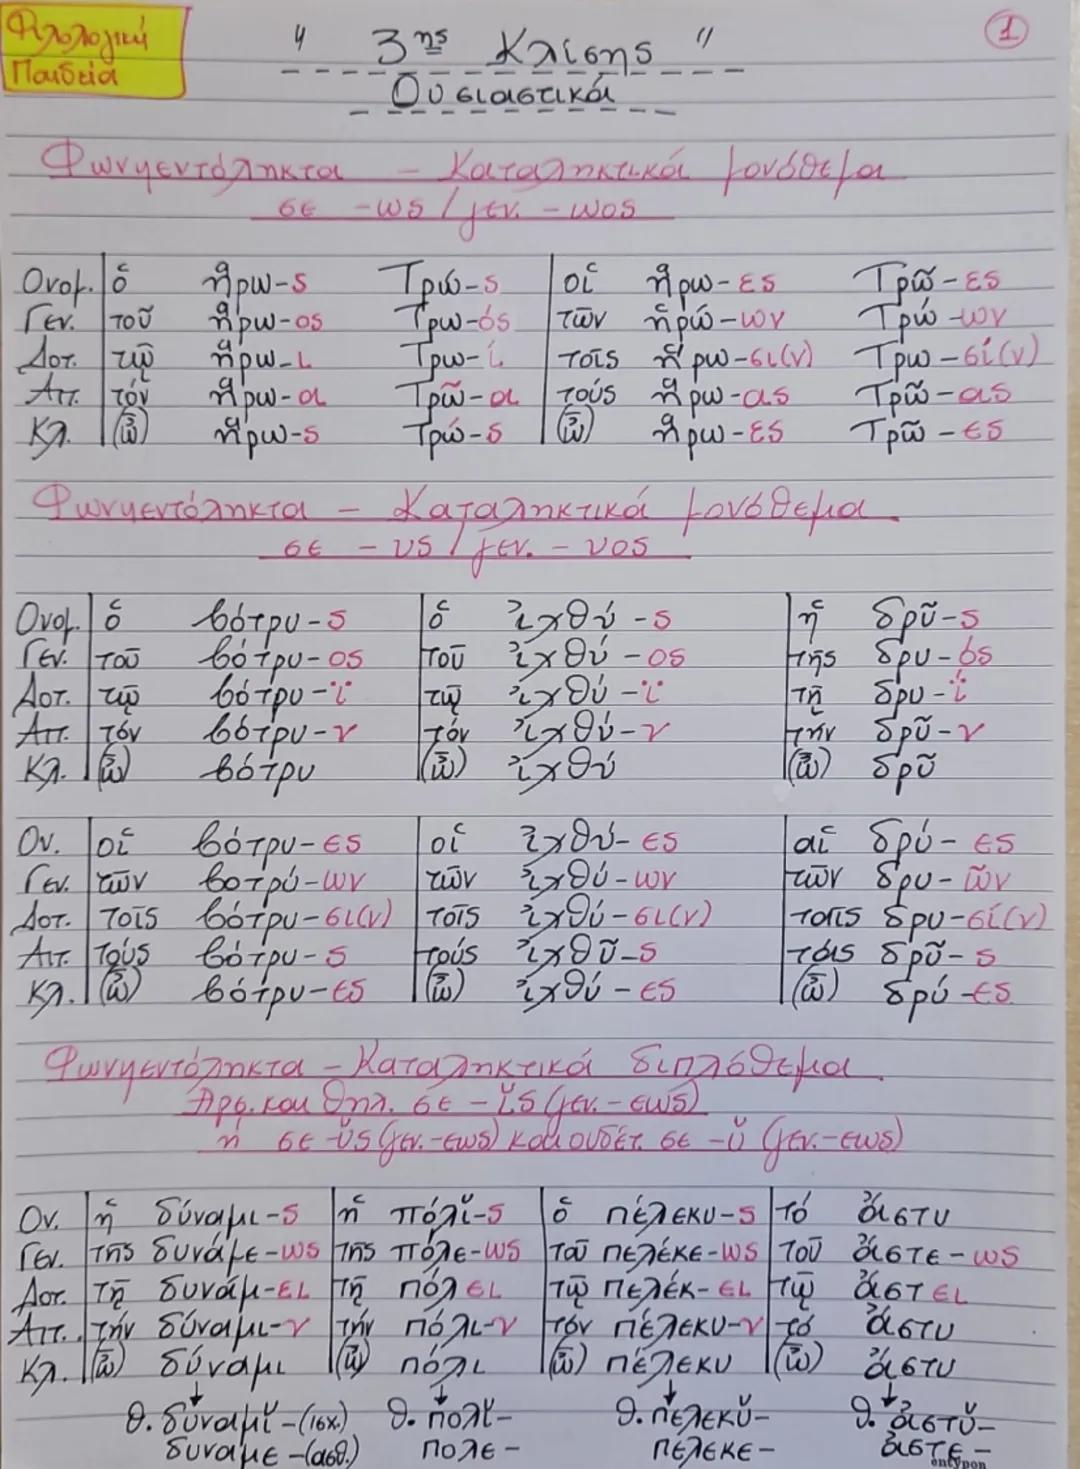 Φιλολογική
Παιδεία
1
" 3ης Κλίσης "
Ουσιαστικά
Φωνηεντόληκτα - Καταληκτικά μονόθεμα
σε -ως / γεν. -ωος
Ονομ. ὁ ἥρω-ς Τρώ-ς οἱ ἥρω-ες Τρῶ-ες
Γεν. τοῦ ἥρω-ος Τρω-ός τῶν ἡρώ-ων Τρώ-ων
Δοτ. τῷ ἥρω-ι Τρω-ί τοῖς ἥρω-σι(ν) Τρω-σί(ν)
Αιτ. τόν ἥρω-α Τρῶ-α τούς ἥρω-ας Τρῶ-ας
Κλ. (ὦ) ἥρω-ς Τρώ-ς (ὦ) ἥρω-ες Τρῶ-ες
Φωνηεντόληκτα - Καταληκτικά μονόθεμα
σε -υς / γεν. -υος
Ονομ. ὁ βότρυ-ς ὁ ἰχθύ-ς ἡ δρῦ-ς
Γεν. τοῦ βότρυ-ος τοῦ ἰχθύ-ος τῆς δρυ-ός
Δοτ. τῷ βότρυ-ϊ τῷ ἰχθύ-ϊ τῇ δρυ-ΐ
Αιτ. τόν βότρυ-ν τόν ἰχθύ-ν τήν δρῦ-ν
Κλ. (ὦ) βότρυ (ὦ) ἰχθύ (ὦ) δρῦ
Ον. οἱ βότρυ-ες οἱ ἰχθύ-ες αἱ δρύ-ες
Γεν. τῶν βοτρύ-ων τῶν ἰχθύ-ων τῶν δρυ-ῶν
Δοτ. τοῖς βότρυ-σι(ν) τοῖς ἰχθύ-σι(ν) ταῖς δρυ-σί(ν)
Αιτ. τούς βότρυ-ς τούς ἰχθῦ-ς τάς δρῦ-ς
Κλ. (ὦ) βότρυ-ες (ὦ) ἰχθύ-ες (ὦ) δρύ-ες
Φωνηεντόληκτα - Καταληκτικά διπλόθεμα
Αρσ. και θηλ. σε -ῐς (γεν. -εως)
ή σε -ῠς (γεν. -εως) και ουδέτ. σε -ῠ (γεν. -εως)
Ον. ἡ δύναμι-ς ἡ πόλῐ-ς ὁ πέλεκυ-ς τό ἄστυ
Γεν. τῆς δυνάμε-ως τῆς πόλε-ως τοῦ πελέκε-ως τοῦ ἄστε-ως
Δοτ. τῇ δυνάμ-ει τῇ πόλει τῷ πελέκ-ει τῷ ἄστει
Αιτ. τήν δύναμι-ν τήν πόλι-ν τόν πέλεκυ-ν τό ἄστυ
Κλ. (ὦ) δύναμι (ὦ) πόλι (ὦ) πέλεκυ (ὦ) ἄστυ
θ. δυναμῐ-(ισχ.) θ. πολῐ- θ. πελεκῠ- θ. ἀστῠ-
δυναμε-(ασθ.) πολε- πελεκε- ἀστε-
entypon